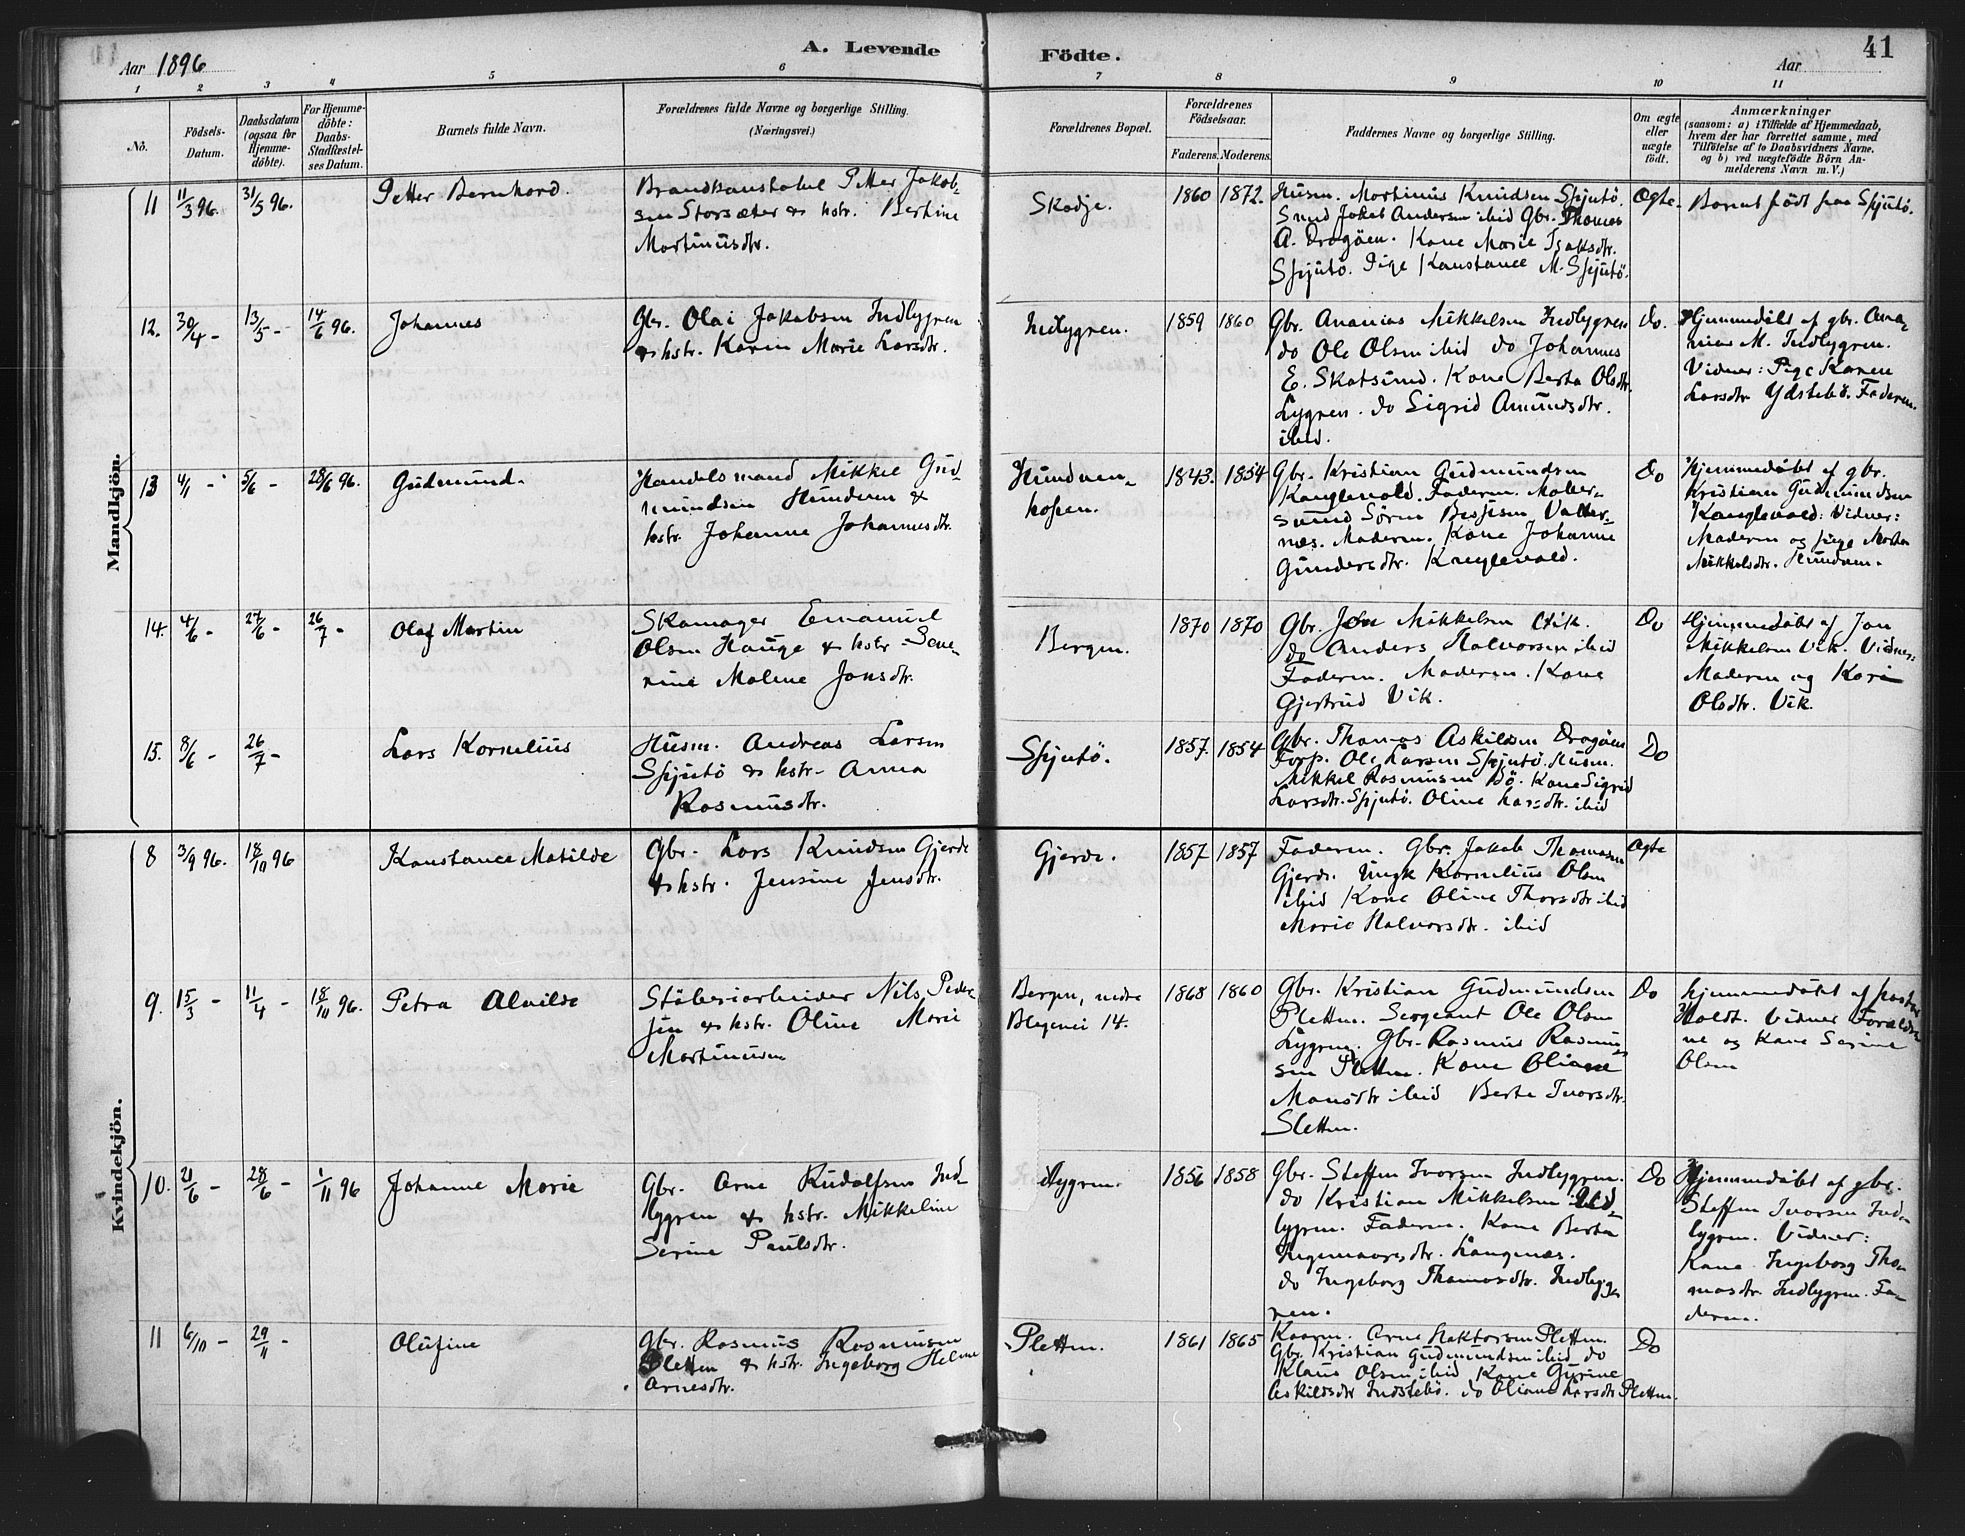 A. Levende
Födte.
41
Aar 1896
Aar
1
2
3
4
5
6
7
8
9
10
11
No.
Födsels-
Datum.
Daabsdatum
(ogsaa for
Hjemme-
döbte).
For Hjemme-
döbte:
Daabs-
Stadfæstel-
ses Datum.
Barnets fulde Navn.
Forældrenes fulde Navne og borgerlige Stilling.
(Næringsvei.)
Forældrenes Bopæl.
Forældrenes
Födselsaar.
Faderens.
Moderens.
Faddernes Navne og borgerlige Stilling.
Om ægte
eller
uægte
födt.
Anmærkninger
(saasom: a) i Tilfælde af Hjemmedaab,
hvem der har forrettet samme, med
Tilföielse af to Daabsvidners Navne,
og b) ved uægtefödte Börn An-
melderens Navn m. V.)
Mandkjön.
11
11/3 96.
31/5 96.
Petter Bernhard.
Brandkonstabel Petter Jakob-
sen Storsæter & hstr. Bertine
Martinusdtr.
Skodje.
1860
1872.
Husm. Martinus Knudsen Spjutö.
Sund Jakob Andersen ibid Gbr. Thomas
A. Dragöen. Kone Marie Isaksdtr.
Spjutö. Pige Konstance M. Spjutö.
Ægte.
Barnet födt paa Spjutö.
12.
30/4 -
13/5 -
14/6 96.
Johannes
Gbr. Olai Jakobsen Indlygren
& hstr. Karen Marie Larsdtr.
Indlygren.
1859
1860
Gbr. Ananias Mikkelsen Indlygren
do Ole Olsen ibid do Johannes
E. Skatsund. Kone Berta Olsdtr.
Lygren. do Sigrid Amundsdtr.
ibid.
do.
Hjemmedöbt af gbr. Ana-
nias M. Indlygren.
Vidner: Pige Karen
Larsdtr Ydstebö. Faderen.
13
4/1 -
5/6 -
28/6 96.
Gudmund.
Handelsmand Mikkel Gud-
mundsen Hundven &
hstr. Johanne Johannesdtr.
Hundven-
hopen.
1843.
1854
Gbr. Kristian Gudmundsen
Kanglevold. Faderen.
sund Sören
næs. Moderen. Kone Johanne
Gundersdtr.
Do
Hjemmedöbt af gbr.
Kristian Gudmundsen
Kanglevold: Vidner:
Moderen og pige Marta
Mikkelsdtr. Hundven.
14.
4/6 -
27/6 -
26/7 -
Olaf Martin
Skomager Emanuel
Olsen Hauge & hstr. Seve-
rine Malene Jonsdtr.
Bergen.
1870
1870
Gbr. Jon Mikkelsen Vik.
do Anders Halvorsen ibid
Faderen. Moderen. Kone
Gjertrud Vik.
Do
Hjemmedöbt af Jon
Mikkelsen Vik. Vidner:
Moderen og Kari
Olsdtr. Vik.
15.
8/6 -
26/7 -
Lars Kornelius
Husm. Andreas Larsen
Spjutö & hstr. Anna
Rasmusdtr.
Spjutö.
1857.
1854
Gbr. Thomas Askildsen Dragöen
Forp. Ole Larsen Spjutö. Husm.
Mikkel Rasmusen Bö. Kone Sigrid
Larsdtr. Spjutö. Oline Larsdtr. ibid
Do
Kvindekjön.
8
3/9 96.
18/10 96
Konstance Matilde
Gbr. Lars Knudsen Gjerde
& hstr. Jensine Jensdtr.
Gjerde.
1857
1857
Faderen. Gbr. Jakob Thomasen
Gjerde. Ungk Kornelius Olsen
ibid Kone Oline Thorsdtr ibid
Marie Halvorsdtr. ibid
Ægte
9.
15/3 -
11/4 -
18/10 96.
Petra Alvilde
Stöberiarbeider Nils Peder-
sen & hstr. Oline Marie
Martinusen
Bergen, nedre
Blegevei 14.
1868
1860
Gbr. Kristian Gudmundsen
Sletten. Sergeant Ole Olsen
Lygren. Gbr. Rasmus Rasmu-
sen Sletten. Kone Oliane
Monsdtr ibid Berte Ivarsdtr.
Sletten.
Do
Hjemmedöbt af pastor
Holdt. Vidner Foræld-
ne og Kone Serine
Olsen
10.
21/6 -
28/6 -
1/11 96
Johanne Marie
Gbr. Arne Rudolfsen Ind-
lygren & hstr. Mikkeline
Serine Paulsdtr.
dlygren.
1856
1858
Gbr. Steffen Ivarsen Indlygren.
do Kristian Mikkelsen Ind-
lygren. Faderen. Kone Berta
Ingemarsdtr. Langenæs.
do Ingeborg Thomasdtr. Indlyg-
ren.
Do
Hjemmedöbt af gbr.
Steffen Ivarsen Ind-
lygren. Vidner:
Kone Ingeborg Tho-
masdtr. Indlygren. Fa-
deren.
11
6/10 -
29/11 -
Olufine
Gbr. Rasmus Rasmusen
Sletten & hstr. Ingeborg Helene
Arnesdtr.
Sletten.
1861
1865
Kaarm. Arne Haktorsen Sletten.
Gbr. Kristian Gudmundsen ibid do
Klaus Olsen ibid Kone Gurine
Askildsdtr Indstebö. do Oliane Larsdtr Sletten.
Do